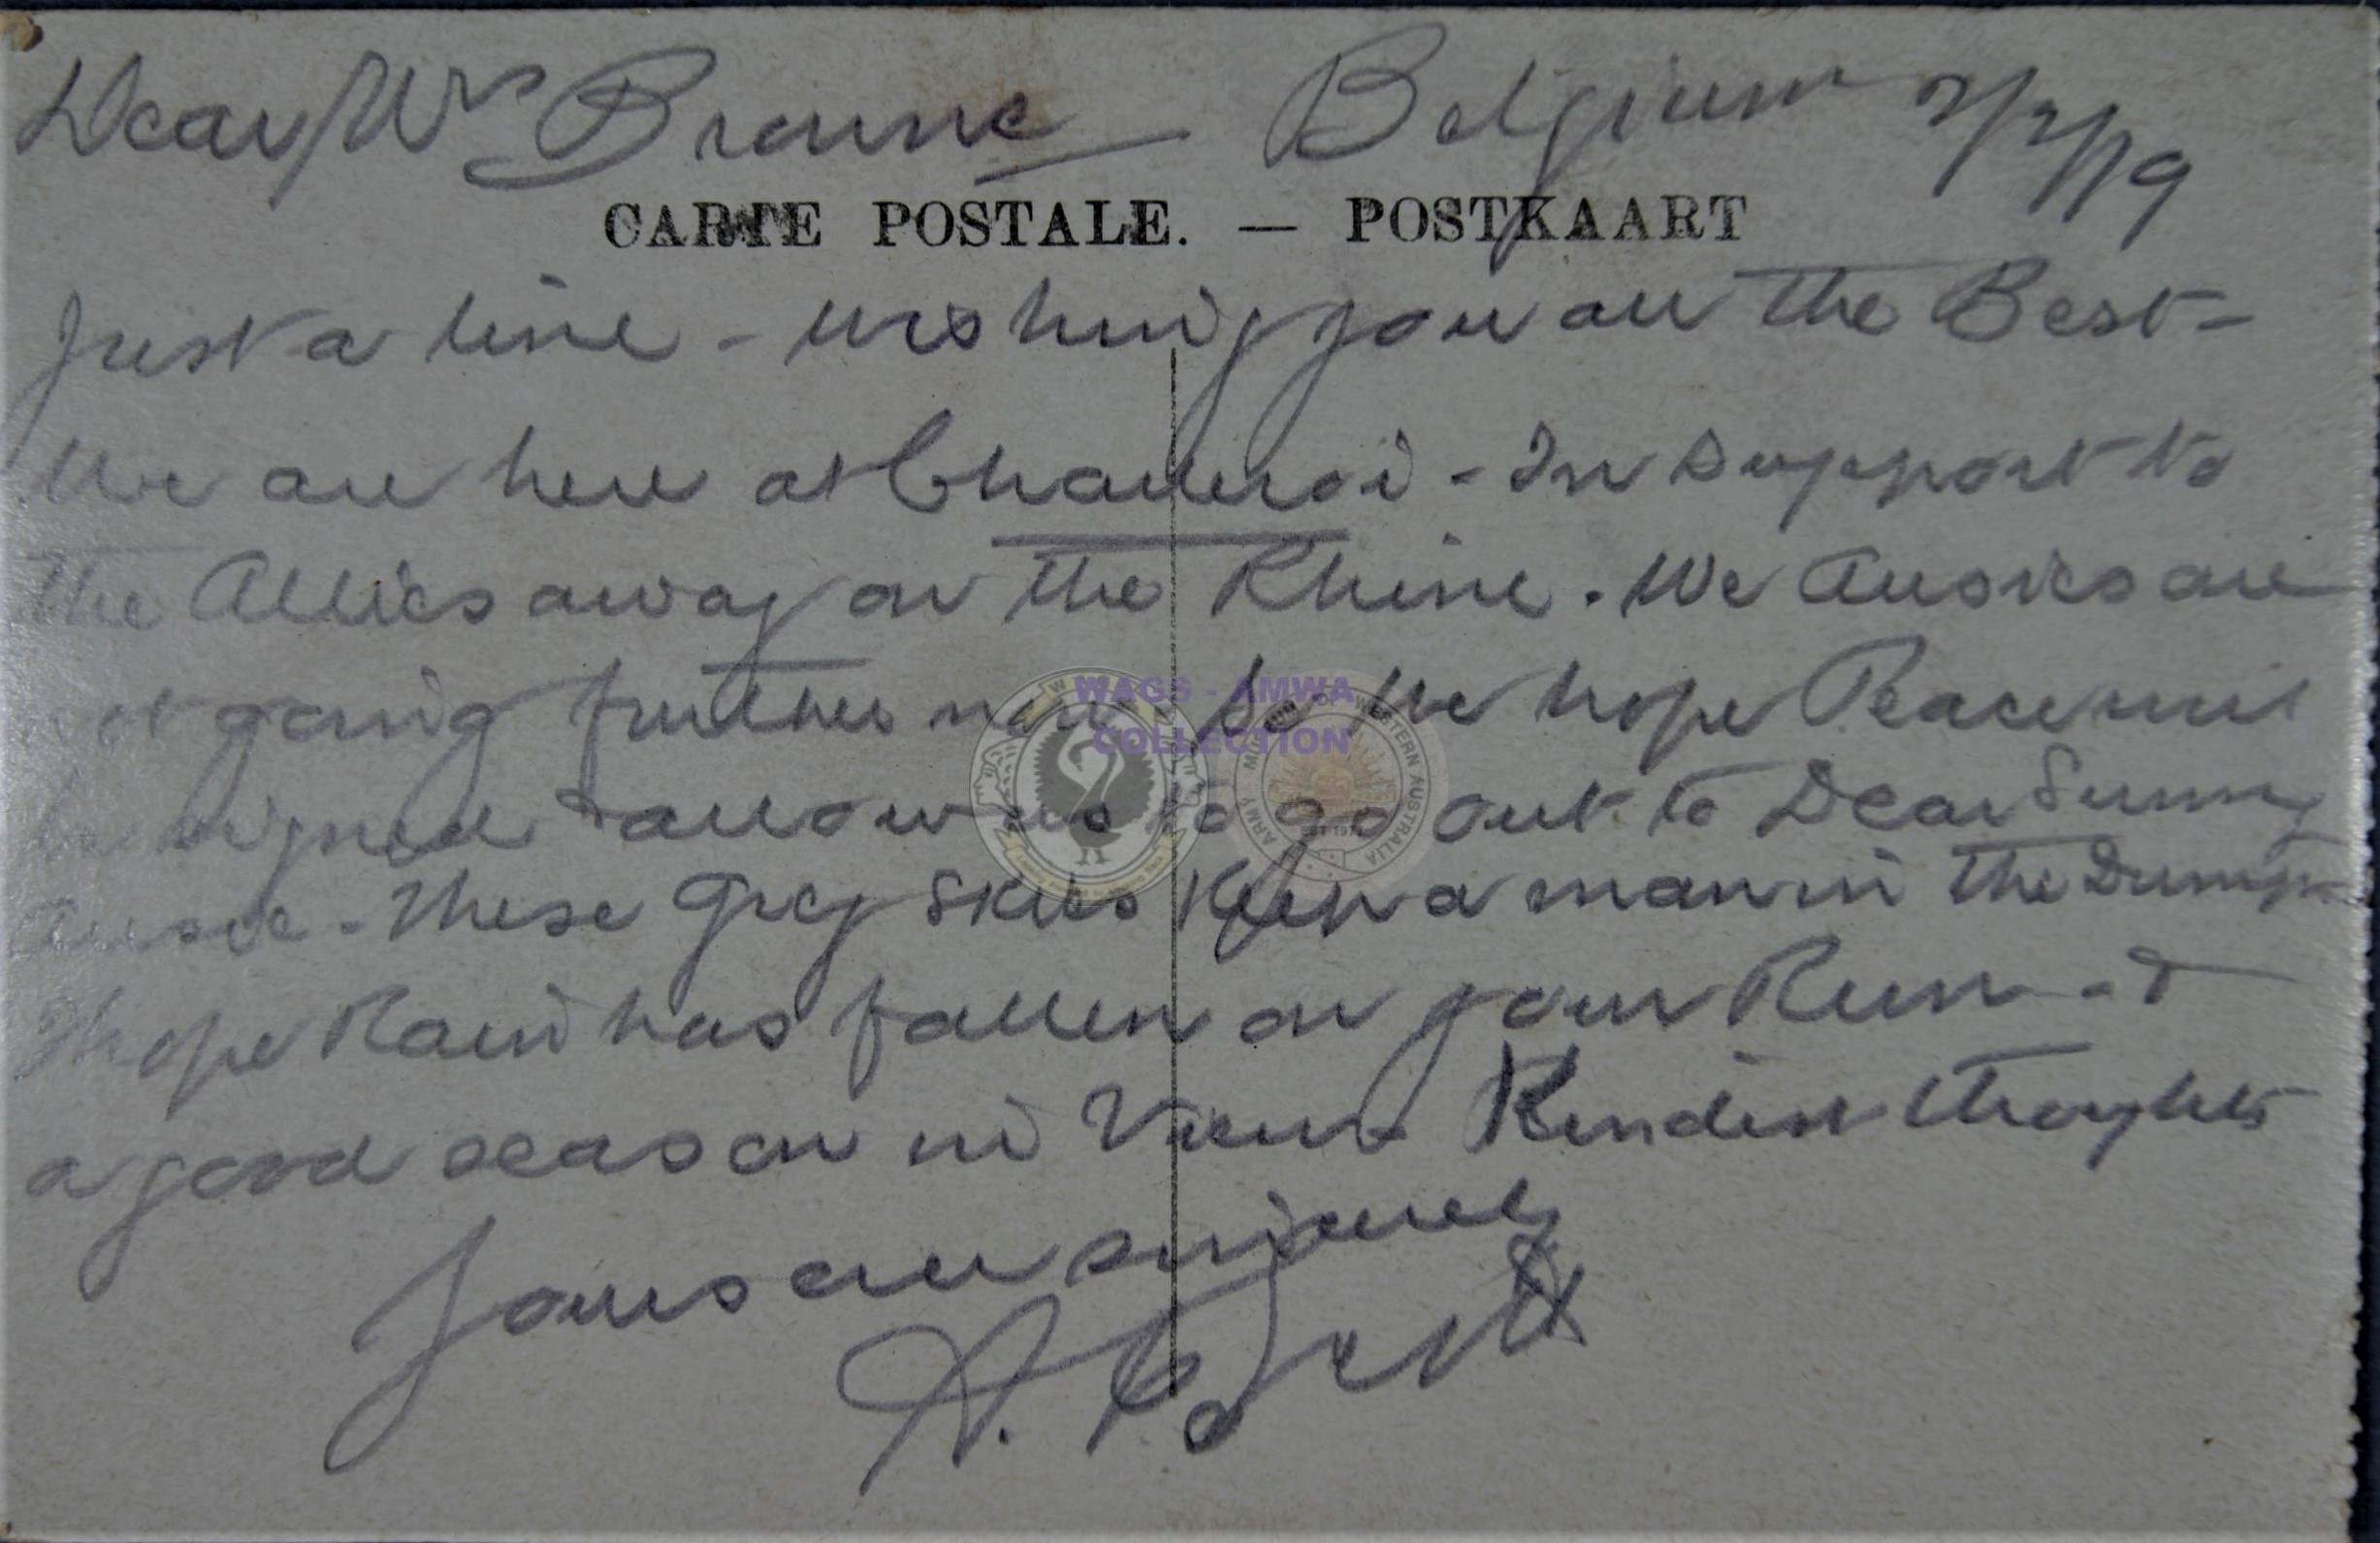 Dear Mrs Browne Belgium 2/2/19
CARTE POSTALE. — POSTKAART
Just a line - wishing you all the Best -
We are here at Charleroi - In support to
the Allies away on the Rhine. We Aussies are
not going further now so we hope Peace will
be signed & allow us to go out to Dear Sunny
Aussie. These Grey Skies Keep a man in the Dumps
I hope Rain has fallen on your Run - &
a good season in View Kindest thoughts
Yours sincerely
A.
WAGS - AMWA
COLLECTION
ARMY MUSEUM WESTERN AUSTRALIA